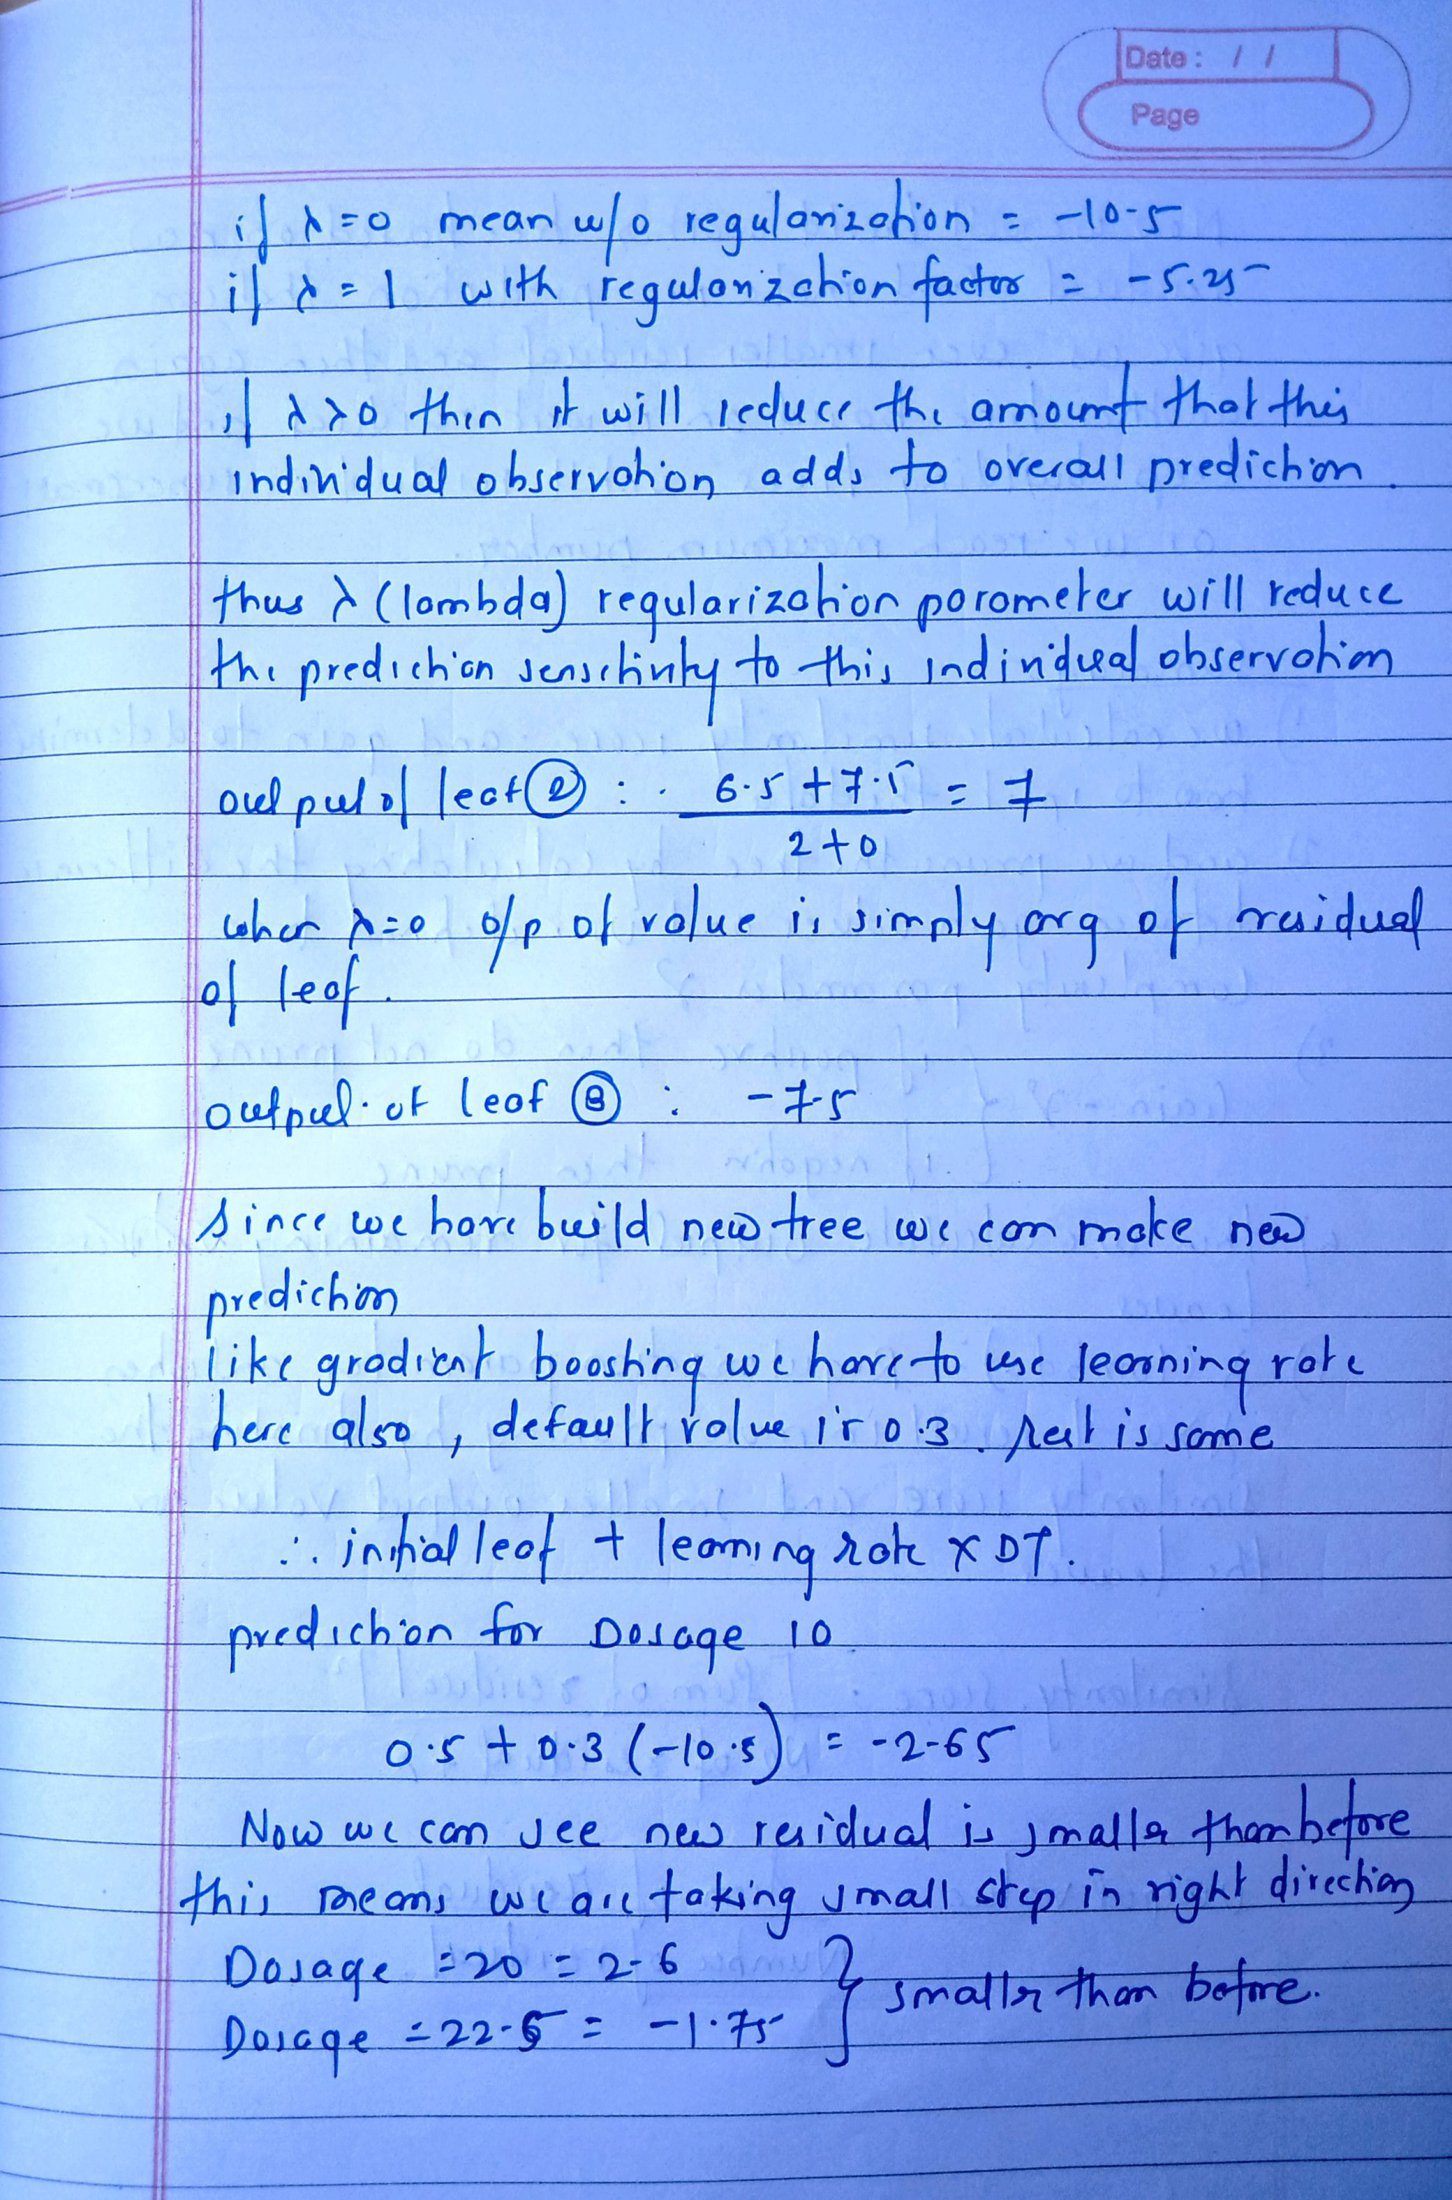 Date : / /
Page
if λ=0 mean w/o regularization = -10.5
if λ = 1 with regularization factor = -5.25
if λ>0 then it will reduce the amount that this
individual observation adds to overall prediction.
thus λ (lambda) regularization parameter will reduce
the prediction sensitivity to this individual observation
output of leaf ② : 6.5 + 7.5 = 7
2+0
when λ=0 o/p of value is simply avg of residual
of leaf.
output of leaf ③ : -7.5
Since we have build new tree we can make new
prediction
like gradient boosting we have to use learning rate
here also, default value is 0.3. Rest is same
∴ initial leaf + learning rate x DT.
prediction for Dosage 10
0.5 + 0.3 (-10.5) = -2.65
Now we can see new residual is smaller than before
this means we are taking small step in right direction
Dosage = 20 = 2.6 } smaller than before.
Dosage = 22.5 = -1.75